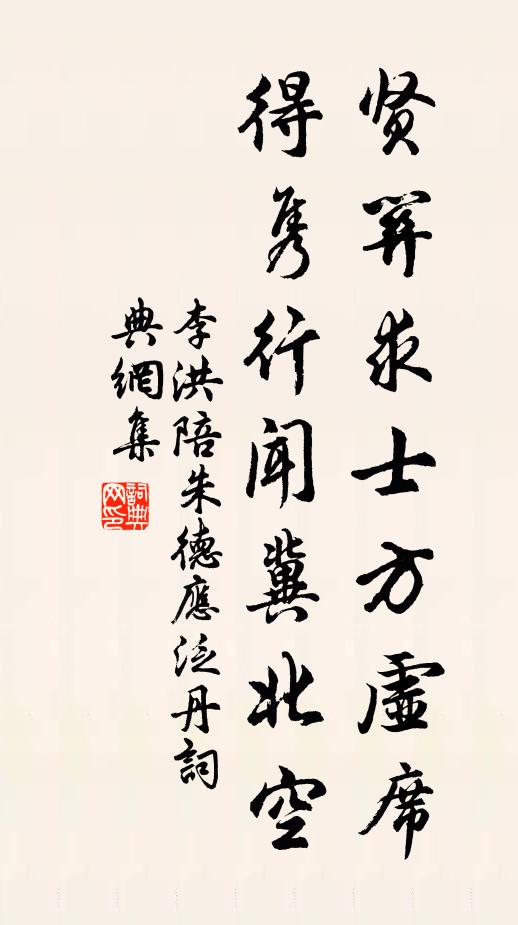 贤関求士方虚席
得隽行闻冀北空
李洪陪朱德應泛丹詞
典網集
詞典网印